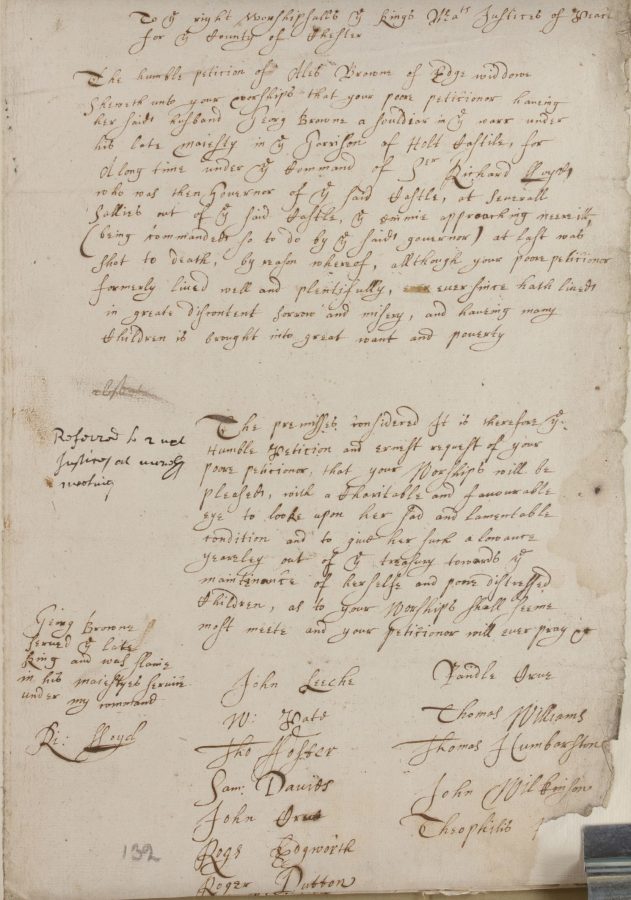 To ye right Worshipfulls ye Kings Maties Justices of Peace
for ye County of Chester
The humble peticion of Ales Browne of Edge widdowe
Sheweth unto your worships that your poore peticionor haveing
her said husband Georg Browne a souldear in ye warr under
his late majesty in ye Garrison of Holt Castile, for
A long time under ye Command of Sr Richard Lloyd,
who was then Governor of ye said Castle, at severall
sallies out of ye said Castle, ye emnie approaching neere it,
(being commanded so to do by ye said governor) at last was
shot to death, by reason whereof, allthough your poore peticionor
formerly lived well and plentifully, ever since hath lived
in greate discontent sorrow and misery, and haveing many
Children is brought into great want and poverty
The premisses considered It is therefore ye
Humble Peticion and ernest request of your
poore peticionor, that your Worships will be
pleased, with a Charitable and favourable
eye to looke upon her sad and lamentable
condition and to give her such alowance
yeareley out of ye treasury towards ye
maintinance of herselfe and poore distressed
Children, as to your Worships shall seeme
most meete and your peticionor will ever pray &c
Referred to 2 next
Justices at
meeting
Georg Browne
served ye late
King and was slaine
in his majestyes servic
under my command
Ri: Lloyd
John Leeche
W: Pate
Tho Foster
Sam: Davies
John Crue
Roge Edgworth
Roger Dutton
Randle Crue
Thomas Williams
Thomas Humbarston
John Wilkinson
Theophilis
132